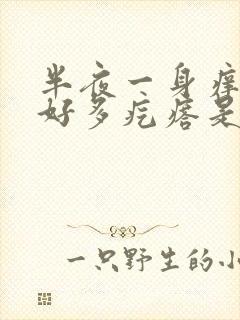 半夜一身痒
好多疙瘩是
一只野生的小